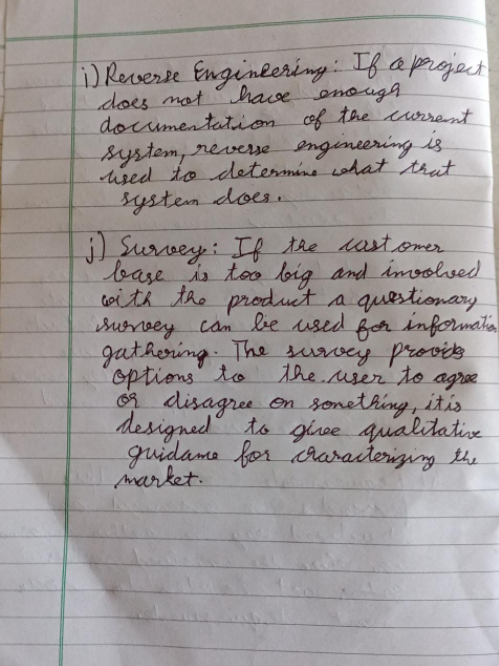 i) Reverse Engineering: If a project
does not have enough
documentation of the current
system, reverse engineering is
used to determine what that
system does.
j) Survey: If the customer
base is too big and involved
with the product a questionary
survey can be used for information
gathering. The survey provids
options to the user to agree
or disagree on something, it is
designed to give qualitative
guidance for characterizing the
market.